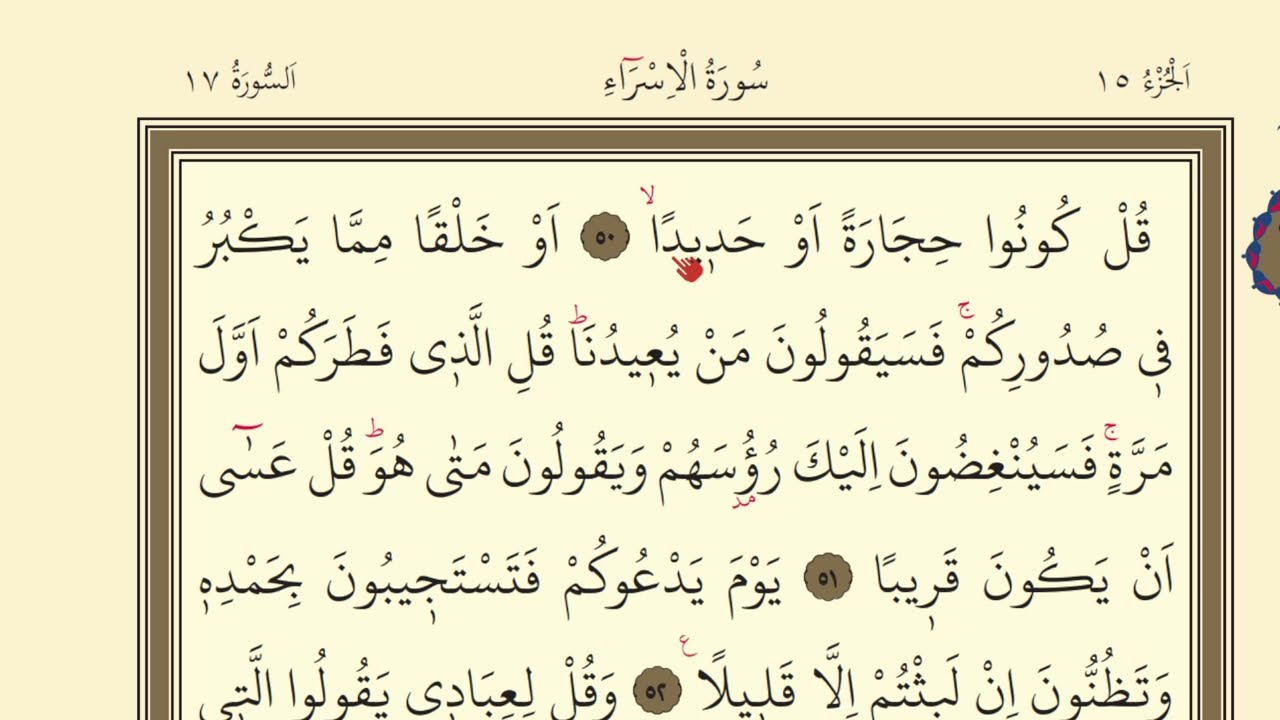 اَلْجُزْءُ ١٥ سُورَةُ الْاِسْرَٓاءِ اَلسُّورَةُ ١٧
قُلْ كُونُوا حِجَارَةً اَوْ حَد۪يدًاۙ ﴿٥٠﴾ اَوْ خَلْقًا مِمَّا يَكْبُرُ
ف۪ي صُدُورِكُمْۚ فَسَيَقُولُونَ مَنْ يُع۪يدُنَاۜ قُلِ الَّذ۪ي فَطَرَكُمْ اَوَّلَ
مَرَّةٍۚ فَسَيُنْغِضُونَ اِلَيْكَ رُؤُ۫سَهُمْ وَيَقُولُونَ مَتٰى هُوَۜ قُلْ عَسٰٓى
اَنْ يَكُونَ قَر۪يبًا ﴿٥١﴾ يَوْمَ يَدْعُوكُمْ فَتَسْتَج۪يبُونَ بِحَمْدِه۪
وَتَظُنُّونَ اِنْ لَبِثْتُمْ اِلَّا قَل۪يلًا۟ ﴿٥٢﴾ وَقُلْ لِعِبَاد۪ي يَقُولُوا الَّت۪ي